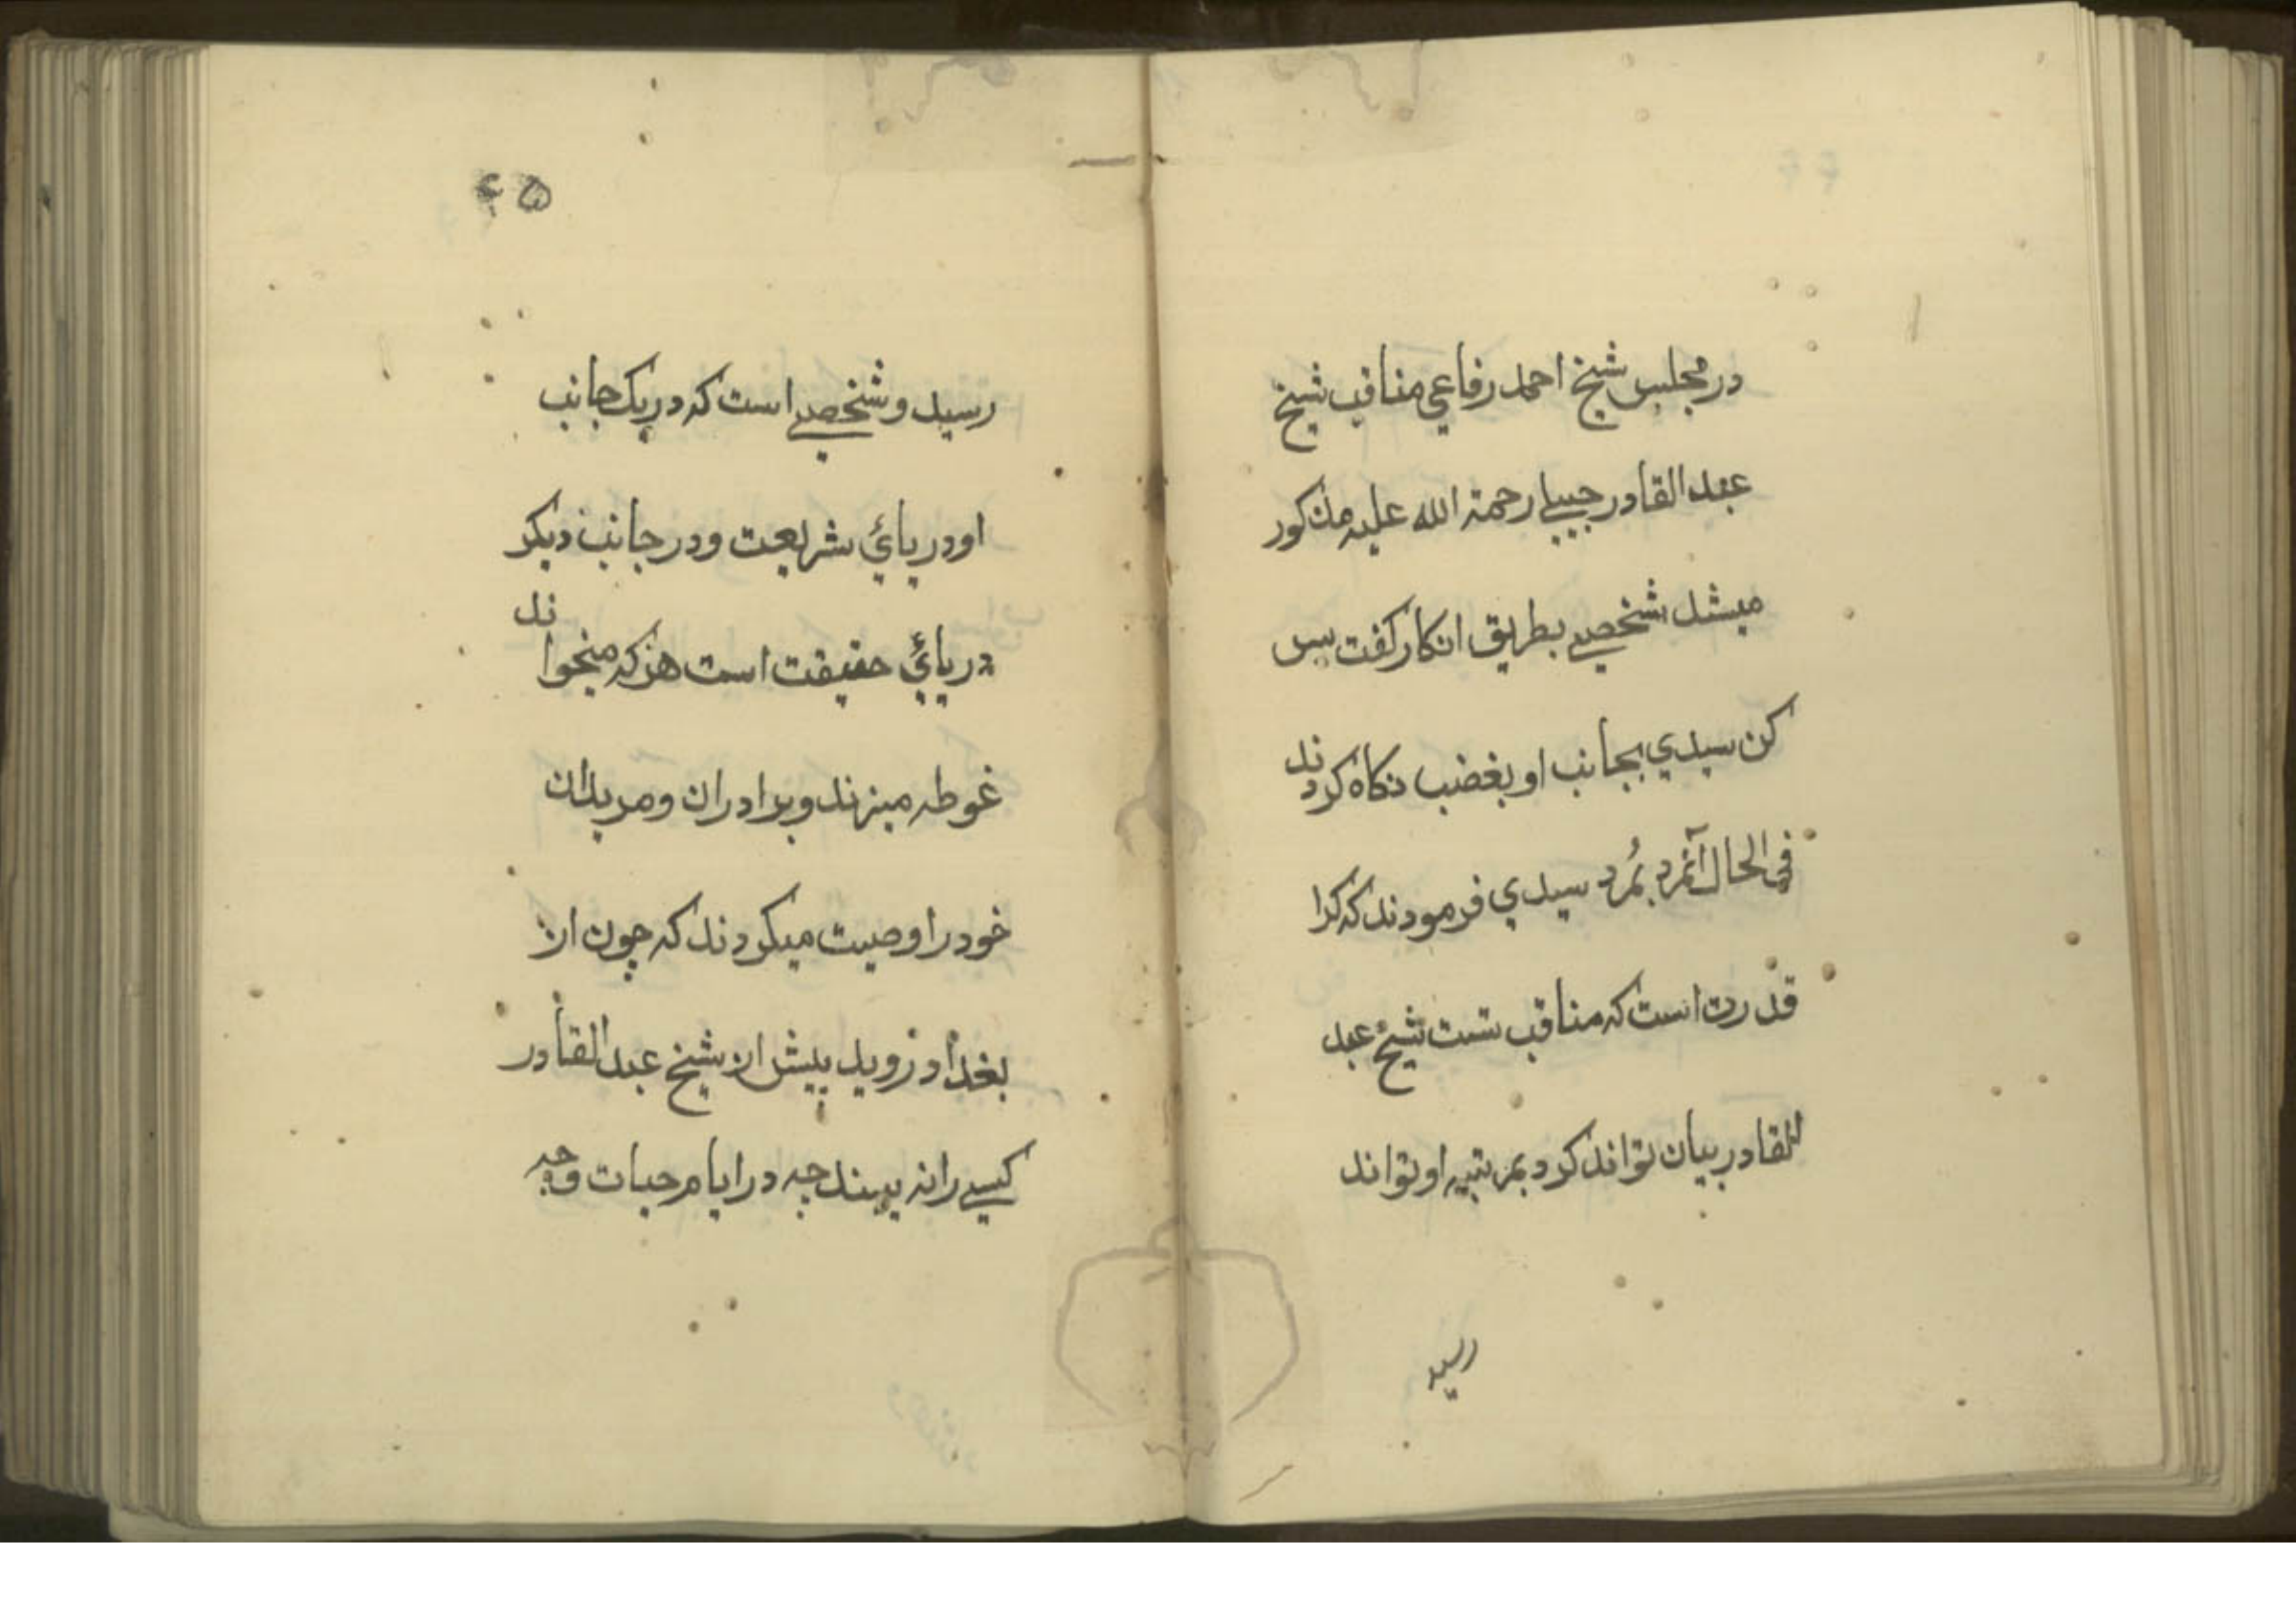 در مجلس شیخ احمد رفاعي مناقب شیخ
عبد القادر جیلے رحمة الله علیه مذکور
میشد شخصے بطریق انکار کفت بس
کن سیدي بجانب او بغضب نکاه کردند
في الحال آنمرد بمُرد سیدي فرمودند که کرا
قدرت است که مناقب شیخ عبد
القادر بیان تواند کرد بمرتبه او تواند
رسید
۶۵
رسید و شخصے است که در یک جانب
او دریائ شریعت و در جانب دیکر
دریائ حقیقت است هر که میخواند
غوطه میزند و برادران و مریدان
خود را وصیت میکردند که چون از
بغداد روید پیش از شیخ عبد القادر
کسے را نه بینند چه در ایام حیات و چه